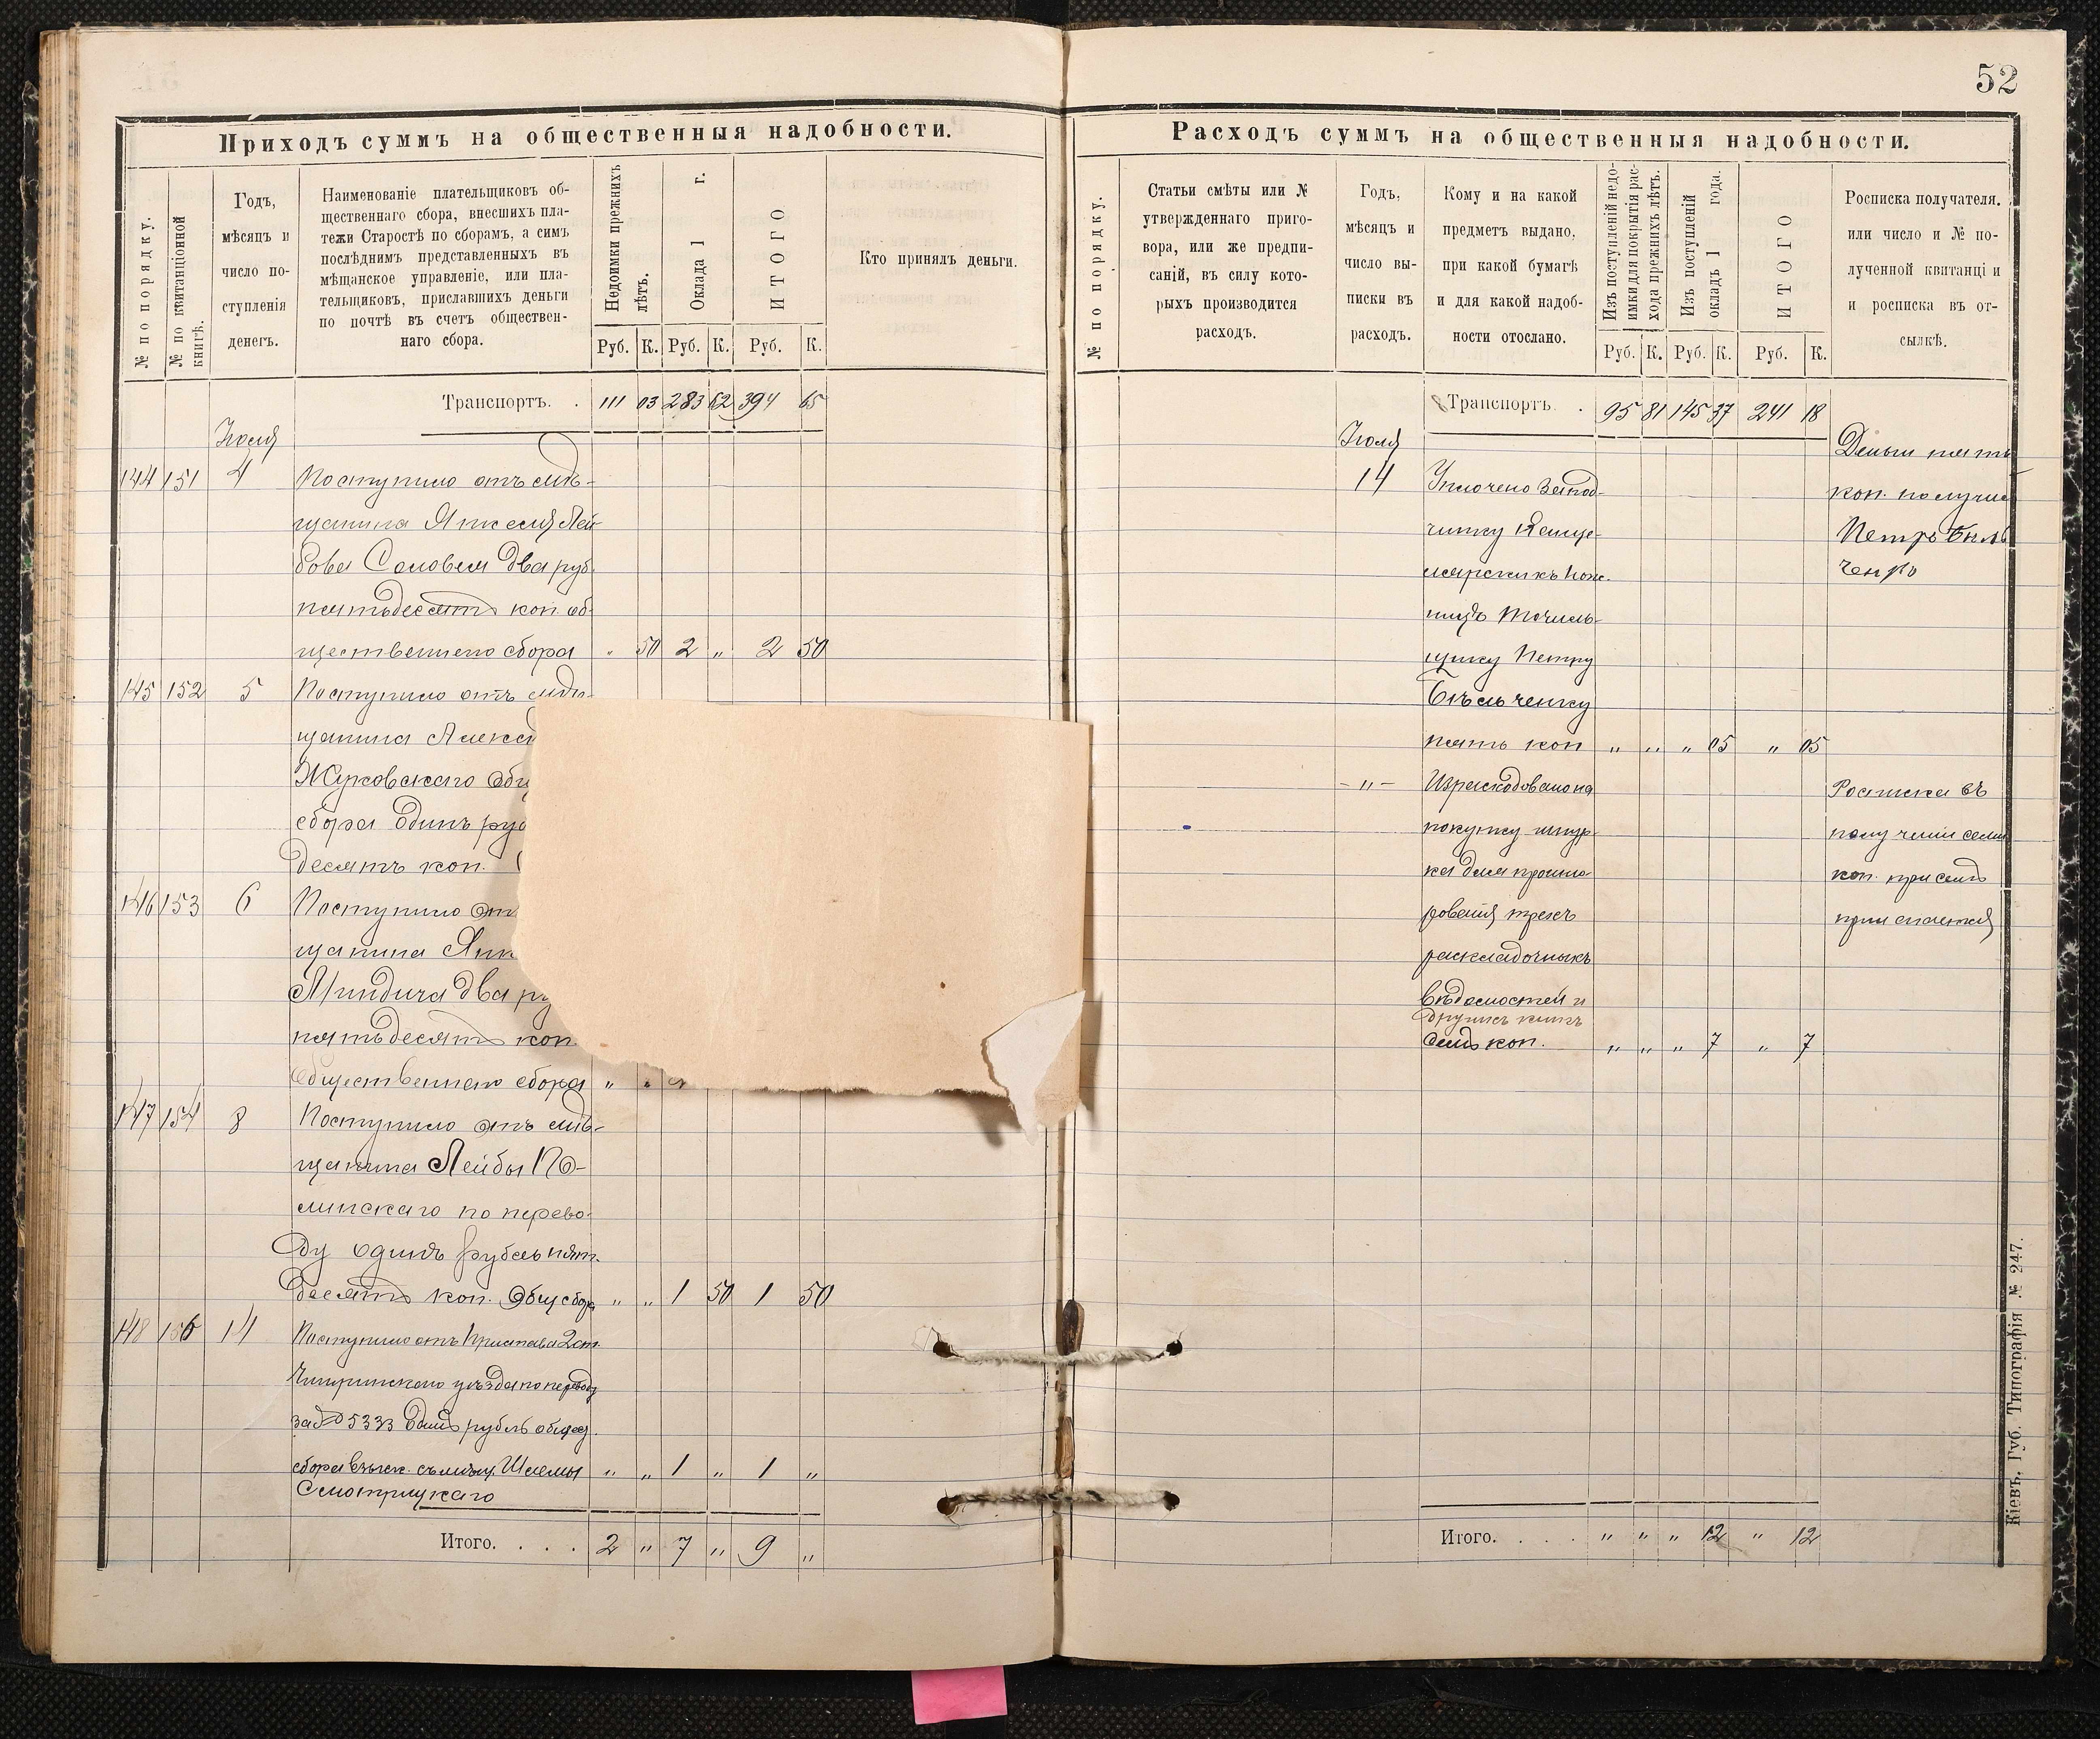 52
Приходъ суммъ на общественныя надобности.
№ по порядку.
№ по квитанціонной книгѣ.
Годъ,
мѣсяцъ и
число по-
ступленія
денегъ.
Наименованіе плательщиковъ об-
щественнаго сбора, внесшихъ пла-
тежи Старостѣ по сборамъ, а симъ
послѣднимъ представленныхъ въ
мѣщанское управленіе, или пла-
тельщиковъ, приславшихъ деньги
по почтѣ въ счетъ обществен-
наго сбора.
Недоимки прежнихъ
лѣтъ.
Оклада 1 г.
ИТОГО
Кто принялъ деньги.
Руб. К. Руб. К. Руб. К.
Транспортъ. . 111 03 283 62 394 65
Іюля
144 151 4 Поступило отъ мѣ-
щанина Янкеля Лей-
бова Соловья два руб.
пятьдесятъ коп. об-
щественнаго сбора " 50 2 " 2 50
145 152 5 Поступило отъ мѣ-
щанина Алекса
Жуковскаго общ
сбора одинъ руб
десятъ коп.
146 153 6 Поступило от
щанина Янк
Миндича два ру
пятьдесятъ коп.
Общественнаго сбора " "
147 154 8 Поступило отъ мѣ-
щанина Лейбы По-
линскаго по перево-
ду одинъ рубль пят-
десятъ коп. Общ сбора " " 1 50 1 50
148 156 14 Поступило отъ Пристава 2 ст.
Чигиринскаго уѣзда по переводу
за № 5333 одинъ рубль обществ.
сбора взыск. съ мѣщ. Шлемы " " 1 " 1 "
Смотрицкаго
Итого. . . . 2 " 7 " 9 "
Расходъ суммъ на общественныя надобности.
№ по порядку.
Статьи смѣты или №
утвержденнаго приго-
вора, или же предпи-
саній, въ силу кото-
рыхъ производится
расходъ.
Годъ,
мѣсяцъ и
число вы-
писки въ
расходъ.
Кому и на какой
предметъ выдано,
при какой бумагѣ
и для какой надоб-
ности отослано.
Изъ поступленій недо-
имки для покрытія рас-
хода прежнихъ лѣтъ.
Изъ поступленій
окладъ 1 года.
ИТОГО
Росписка получателя,
или число и № по-
лученной квитанці и
и росписка въ от-
сылкѣ.
Руб. К. Руб. К. Руб. К.
Транспортъ . 95 81 145 37 241 18
Іюля
14 Уплочено за под-
чинку Канце-
лярскихъ нож-
ницъ точиль-
щику Петру
Бѣльченку
пять коп " " " 05 " 05
Деньги пять
коп. получил
Петръ Бѣль
ченко
- " - Израсходовано на
покупку шнур-
ка для прошну-
рованія трехъ
раскладочныхъ
вѣдомостей и
другихъ книгъ
семь коп. " " " 7 " 7
Росписка въ
получении семи
коп. при семъ
прилагается
Итого. . . . " " " 12 " 12
Кіевъ. Губ. Типографія № 247.